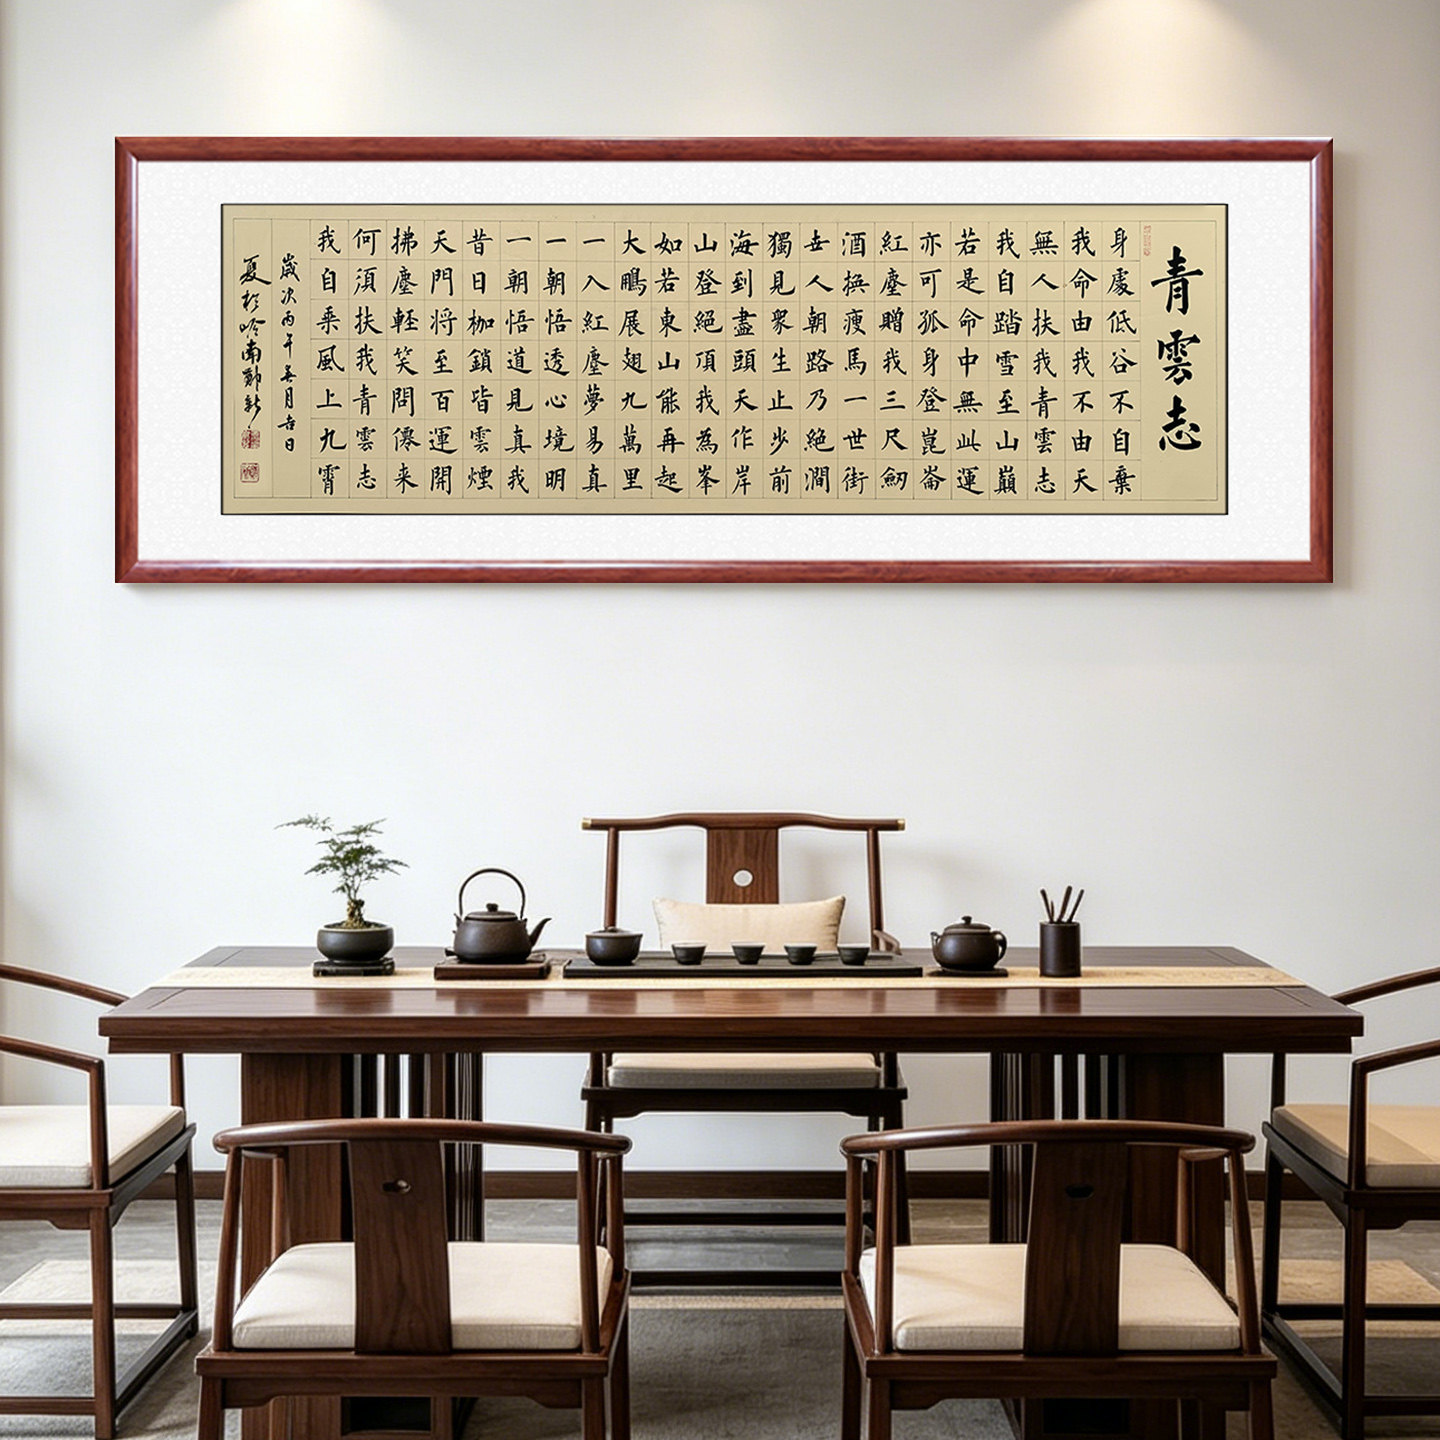 青雲志
身處低谷不自棄
我命由我不由天
無人扶我青雲志
我自踏雪至山巔
若是命中無此運
亦可孤身登崑崙
紅塵贈我三尺劒
酒換瘦馬一世街
世人朝路乃絕澗
獨見眾生止步前
海到盡頭天作岸
山登絕頂我為峯
如若東山能再起
大鵬展翅九萬里
一入紅塵夢易真
一朝悟透心境明
一朝悟道見真我
昔日枷鎖皆雲煙
天門將至百運開
拂塵輕笑問僊来
何須扶我青雲志
我自乘風上九霄
歲次丙午 月吉日
夏於岭南鄭新